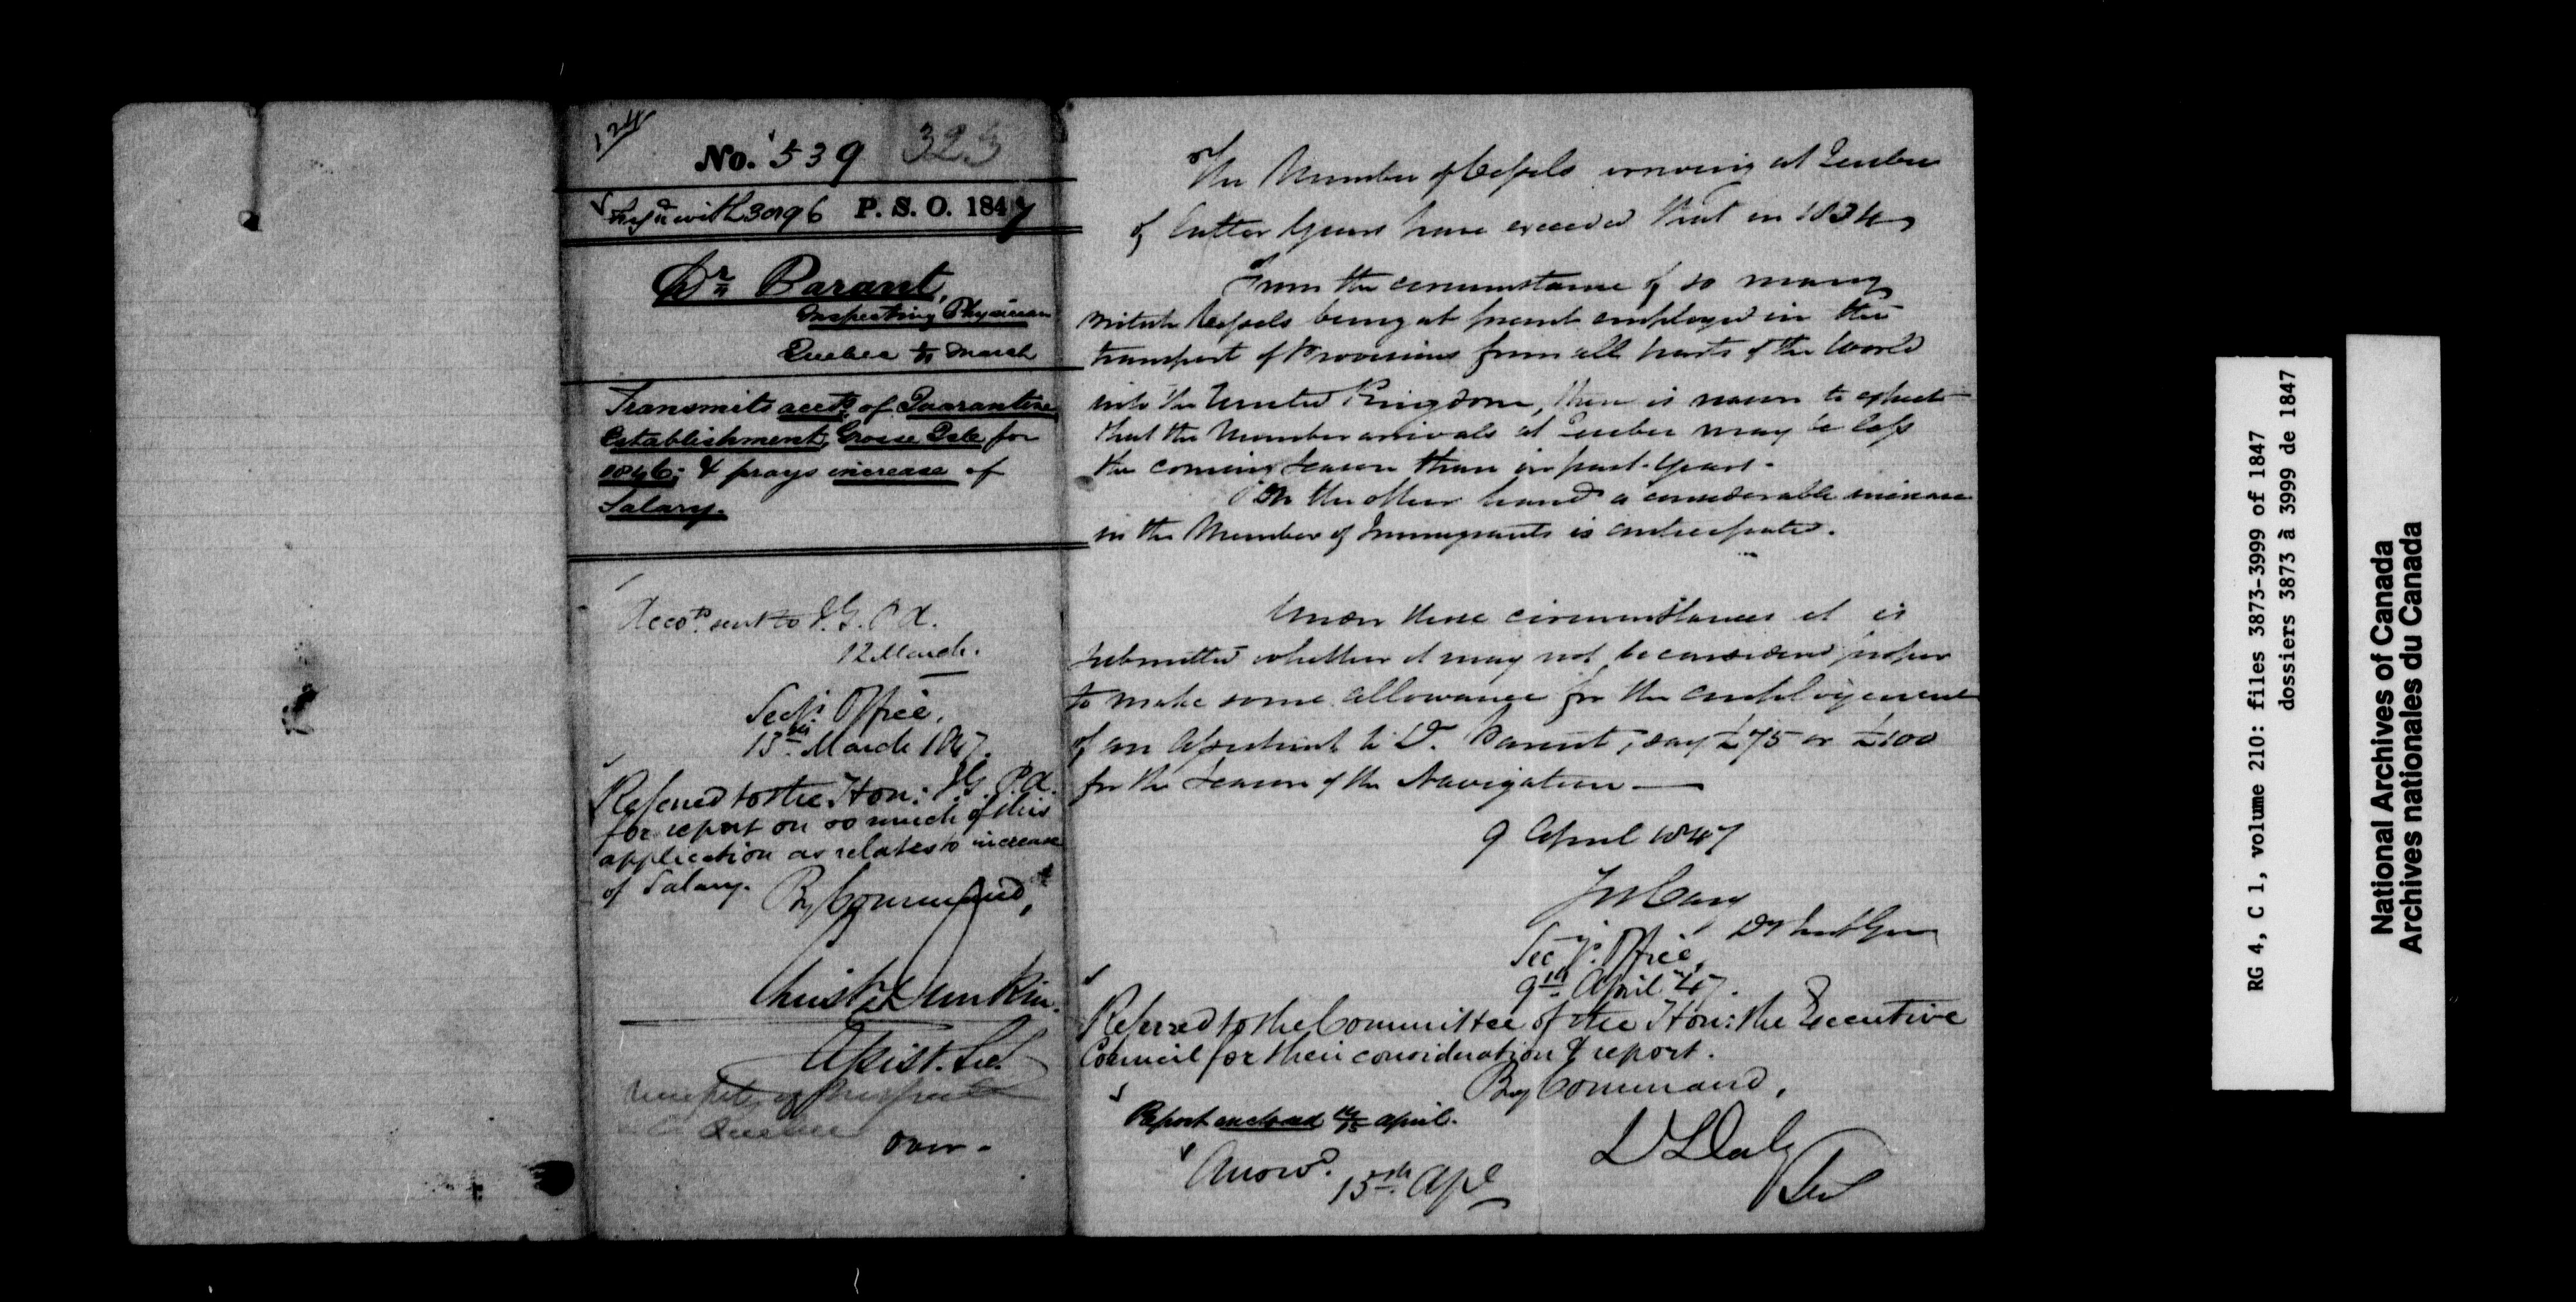 124
No. 539 323
with 3096 P. S. O. 1847
Dr. Parant,
Inspecting Physician
Quebec March
Transmits accts. of Quarantine
Establishment, Grosse Isle for
1846; & prays increase of
Salary.
Accots. sent to I. G. P. A.
12 March.
Secy's. Office,
13th March 1847.
Referred to the Hon: I. G. P. A.
for report on so much of this
application as relates to increase
of Salary.
By Command,
Christr Dunkin.
Assist. Sec.
Quebec
over -
The Number of Vessels arriving at Quebec
of latter Years have exceeded that in 1834
From the circumstance of so many
British Vessels being at present employed in the
transport of Provisions from all parts of the World
into the United Kingdom, there is reason to expect
that the Number arrivals at Quebec may be less
the coming Season than in past Years.
On the other hand a considerable increase
in the Number of Immigrants is anticipated.
Under these circumstances it is
submitted whether it may not be considered proper
to make some allowance for the employment
of an Assistant to Dr. Parant, say £75 or £100
for the Season of the Navigation —
9 April 1847
Jos Cary
Dy Inspt Gen
Secy's. Office,
9th April 47.
Referred to the Committee of the Hon: the Executive
Council for their consideration & report.
By Command,
Report enclosed 14/15 April.
D Daly
Sec
Answd. 15th Apl
RG 4, C 1, volume 210: files 3873-3999 of 1847
dossiers 3873 à 3999 de 1847
National Archives of Canada
Archives nationales du Canada